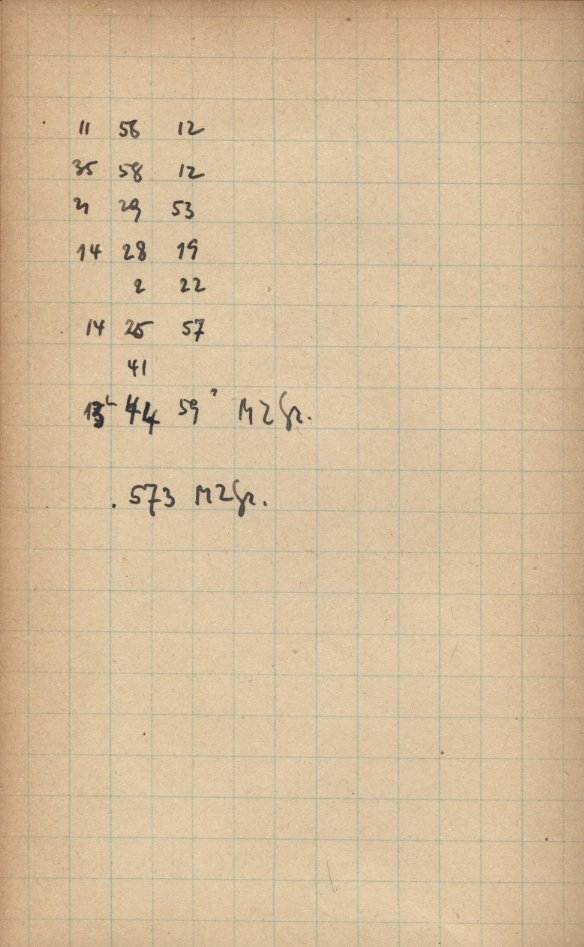 11 56 12
35 58 12
21 29 53
14 28 19
2 22
14 25 57
41
13ʰ 44 59ˢ MZGr.
.573 MZGr.